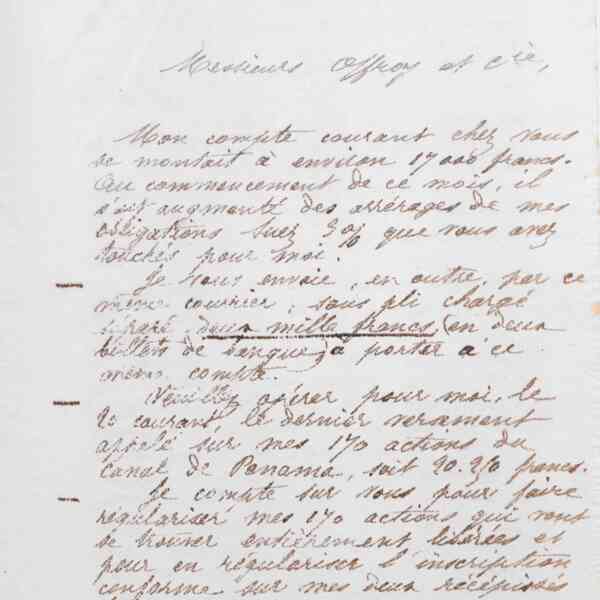 Messieurs Offroy et Cie,
Mon compte courant chez vous
se montait à environ 17 000 francs.
Au commencement de ce mois, il
s'est augmenté des arrérages de mes
obligations Suez 3% que vous avez
touchés pour moi.
Je vous envoie, en outre, par ce
même courrier, sous pli chargé
séparé, deux mille francs (en deux
billets de banque) à porter à ce
même compte.
Veuillez opérer pour moi, le
courant, le dernier versement
appelé sur mes 170 actions du
canal de Panama, soit francs.
Je compte sur vous pour faire
régulariser mes 170 actions qui vont
se trouver entièrement libérées et
pour en régulariser l'inscription
conforme sur mes deux récépissés